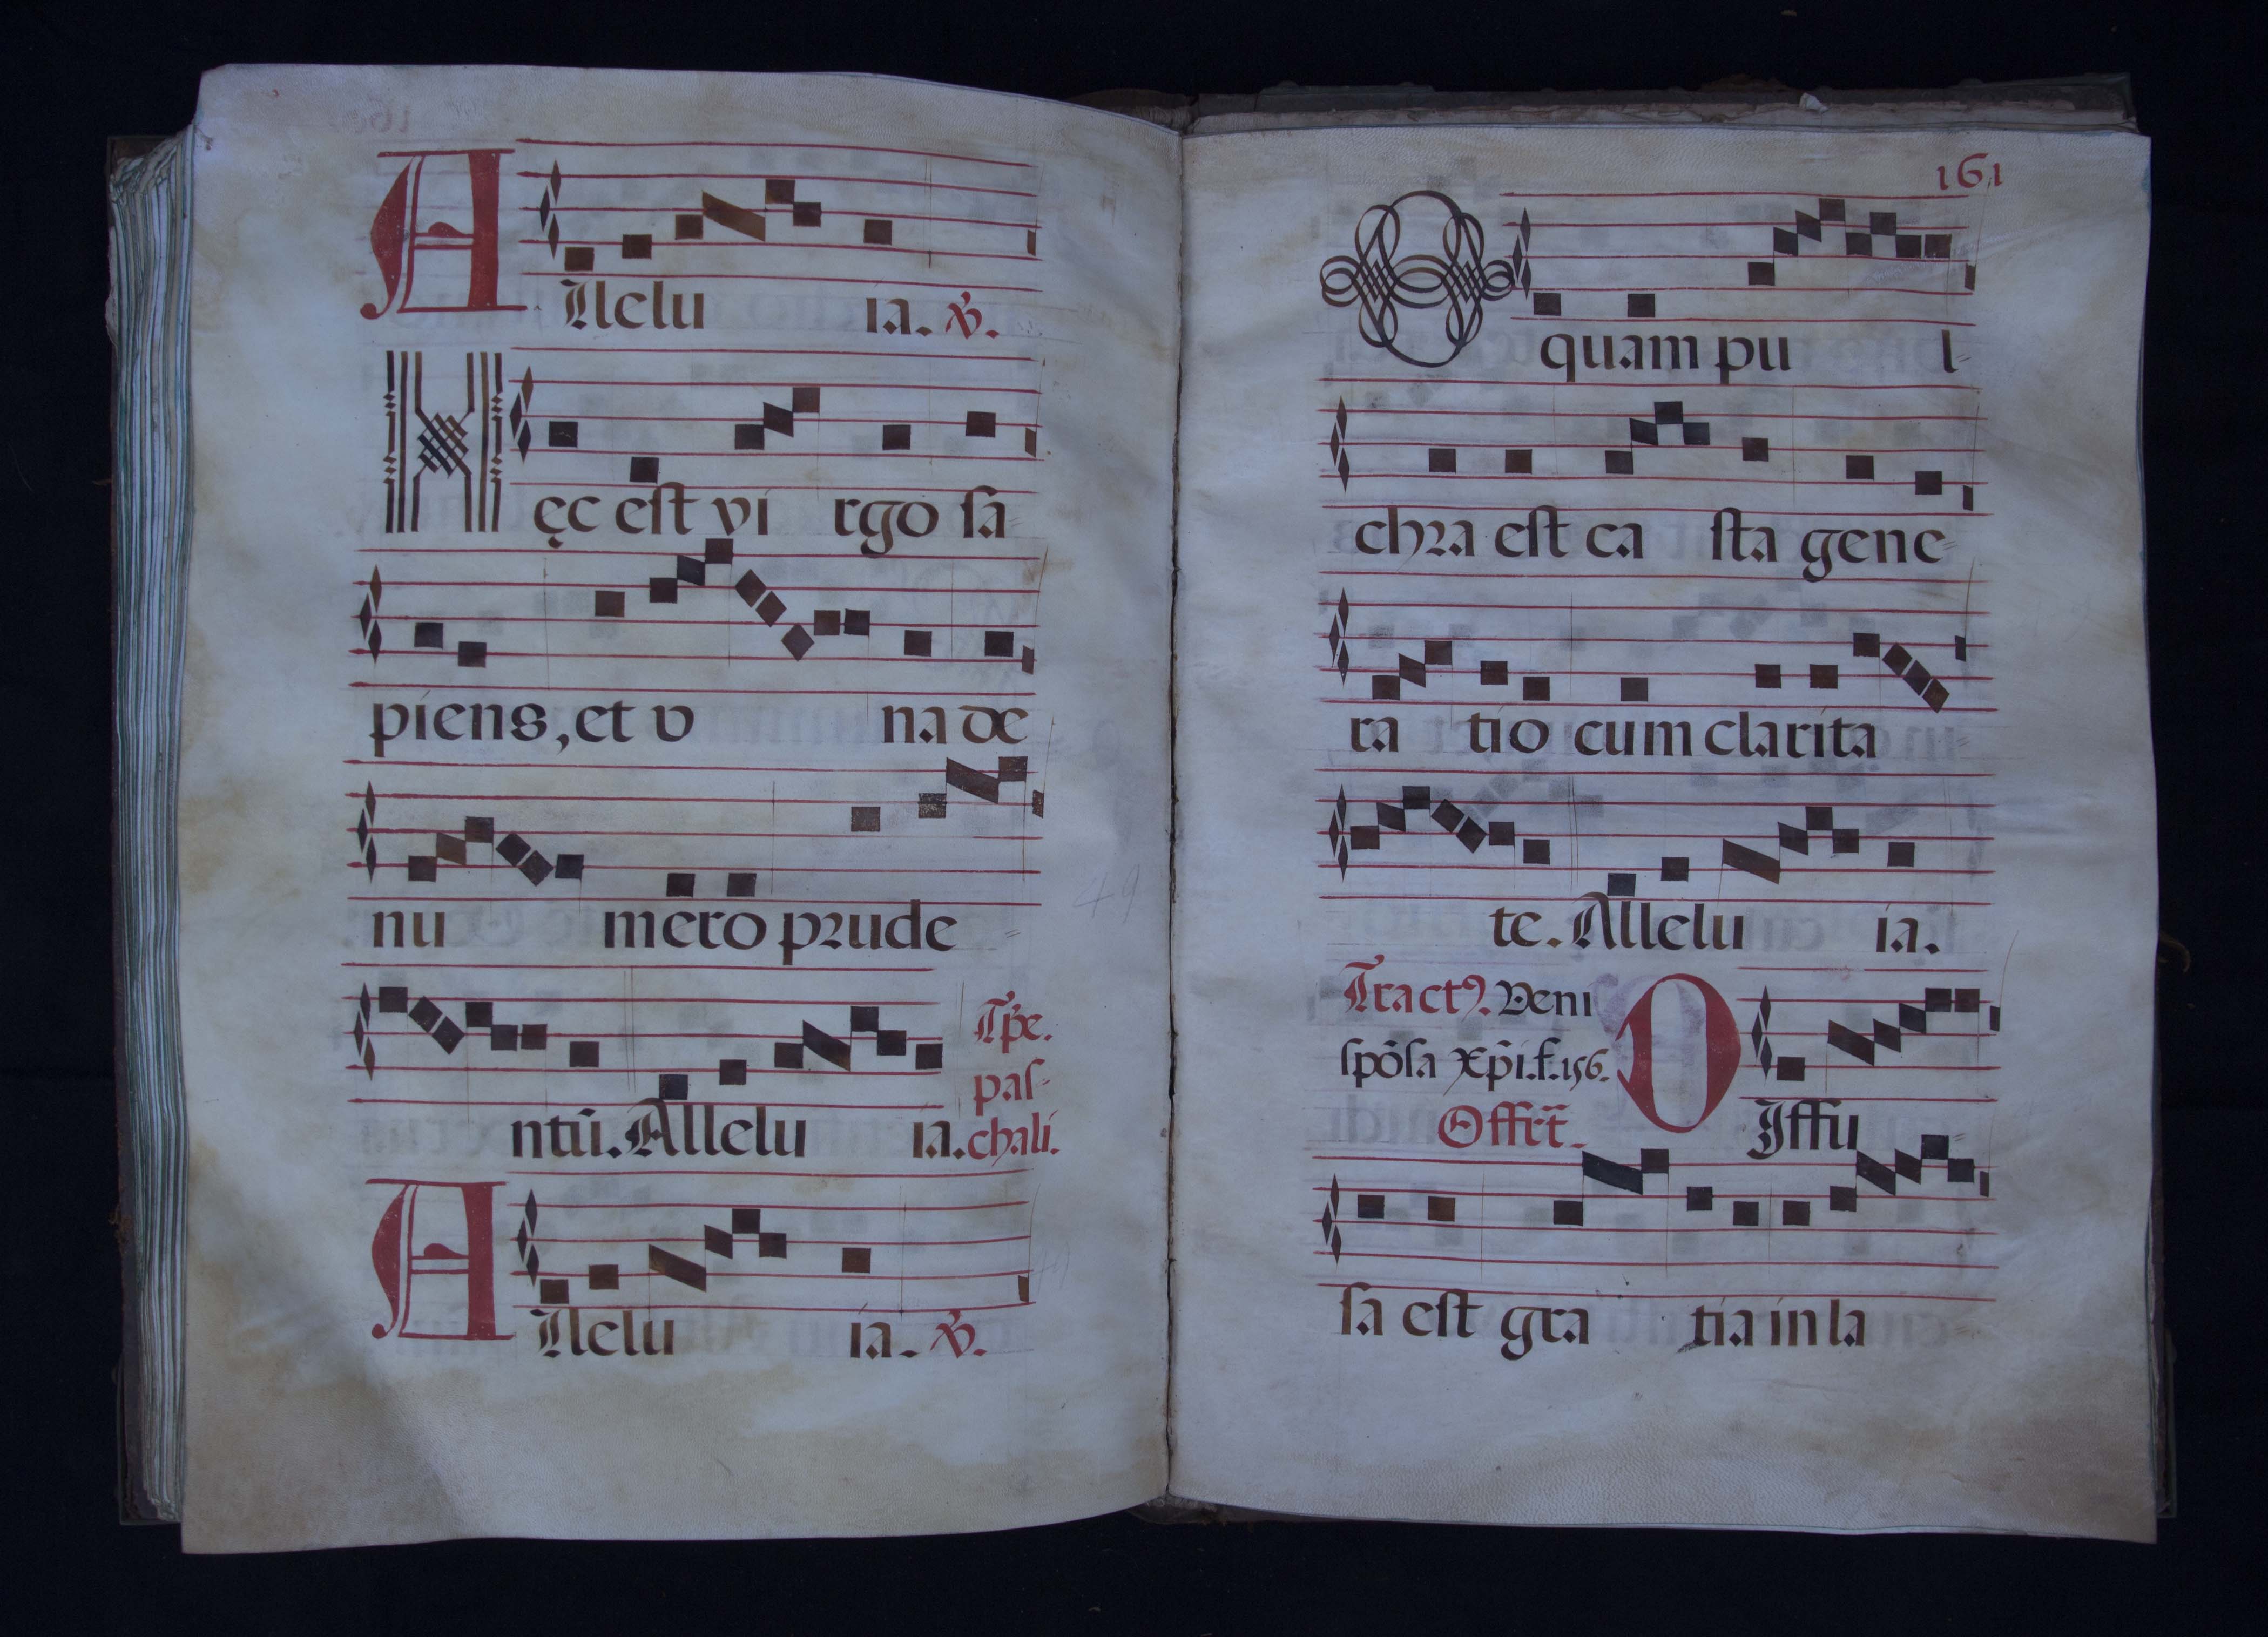 Allelu ia. ℣.
Hęc est vi rgo sa=
piens, et v na de
nu mero prude=
ntū. Allelu ia. Tp̄e.
pas-
chali.
Allelu ia. ℣.
161
O quam pu l=
chra est ca sta gene=
ra tio cum clarita
te. Allelu ia.
Tractꝰ. Veni
spōsa xp̄i. f. 156.
Offert̄.
DIffu=
sa est gra tia in la=
49